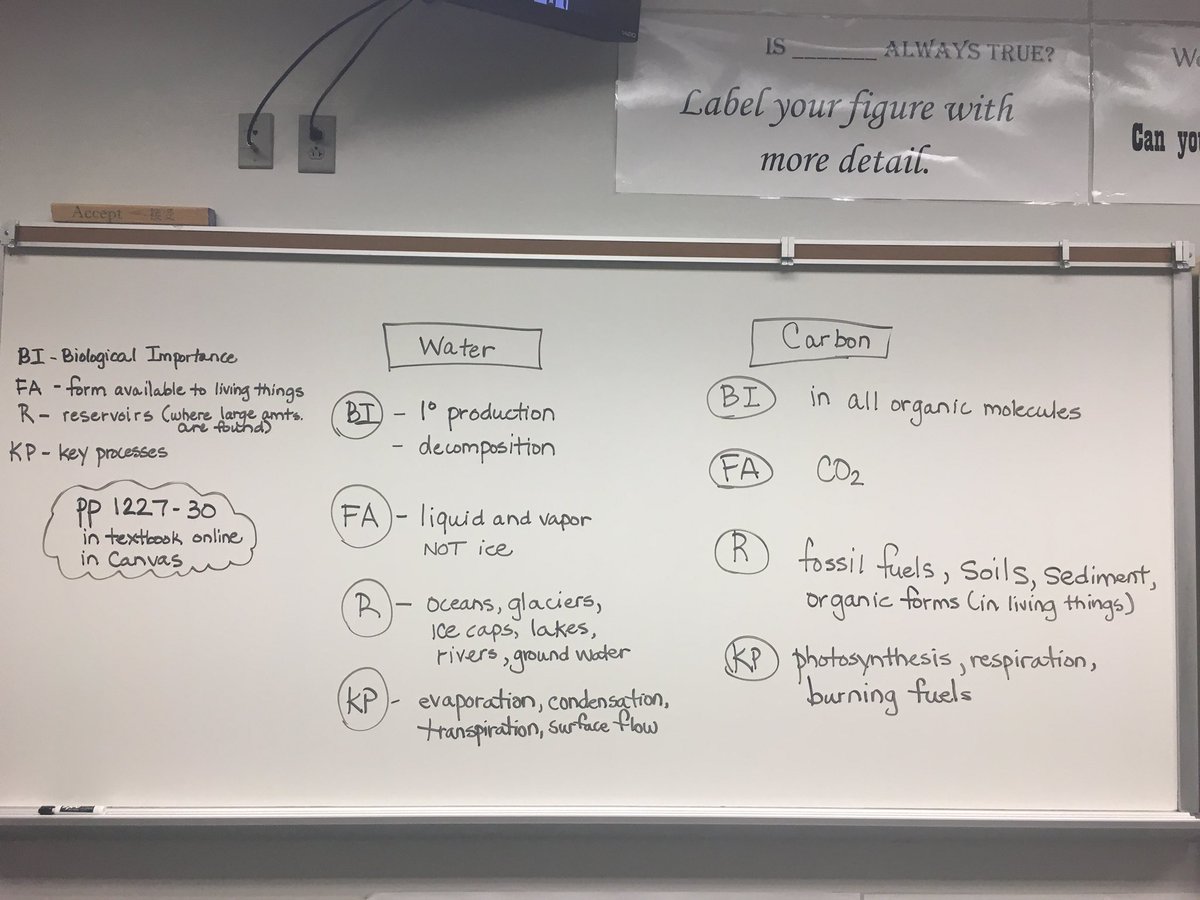 VIZIO
IS _______ ALWAYS TRUE?
Label your figure with
more detail.
Can
Accept 一 接受
BI - Biological Importance
FA - form available to living things
R - reservoirs (where large amts.
are found)
KP - key processes
pp 1227-30
in textbook online
in Canvas
Water
BI - 1° production
- decomposition
FA - liquid and vapor
NOT ice
R - oceans, glaciers,
ice caps, lakes,
rivers, ground water
KP - evaporation, condensation,
transpiration, surface flow
Carbon
BI in all organic molecules
FA CO₂
R fossil fuels, soils, sediment,
organic forms (in living things)
KP photosynthesis, respiration,
burning fuels